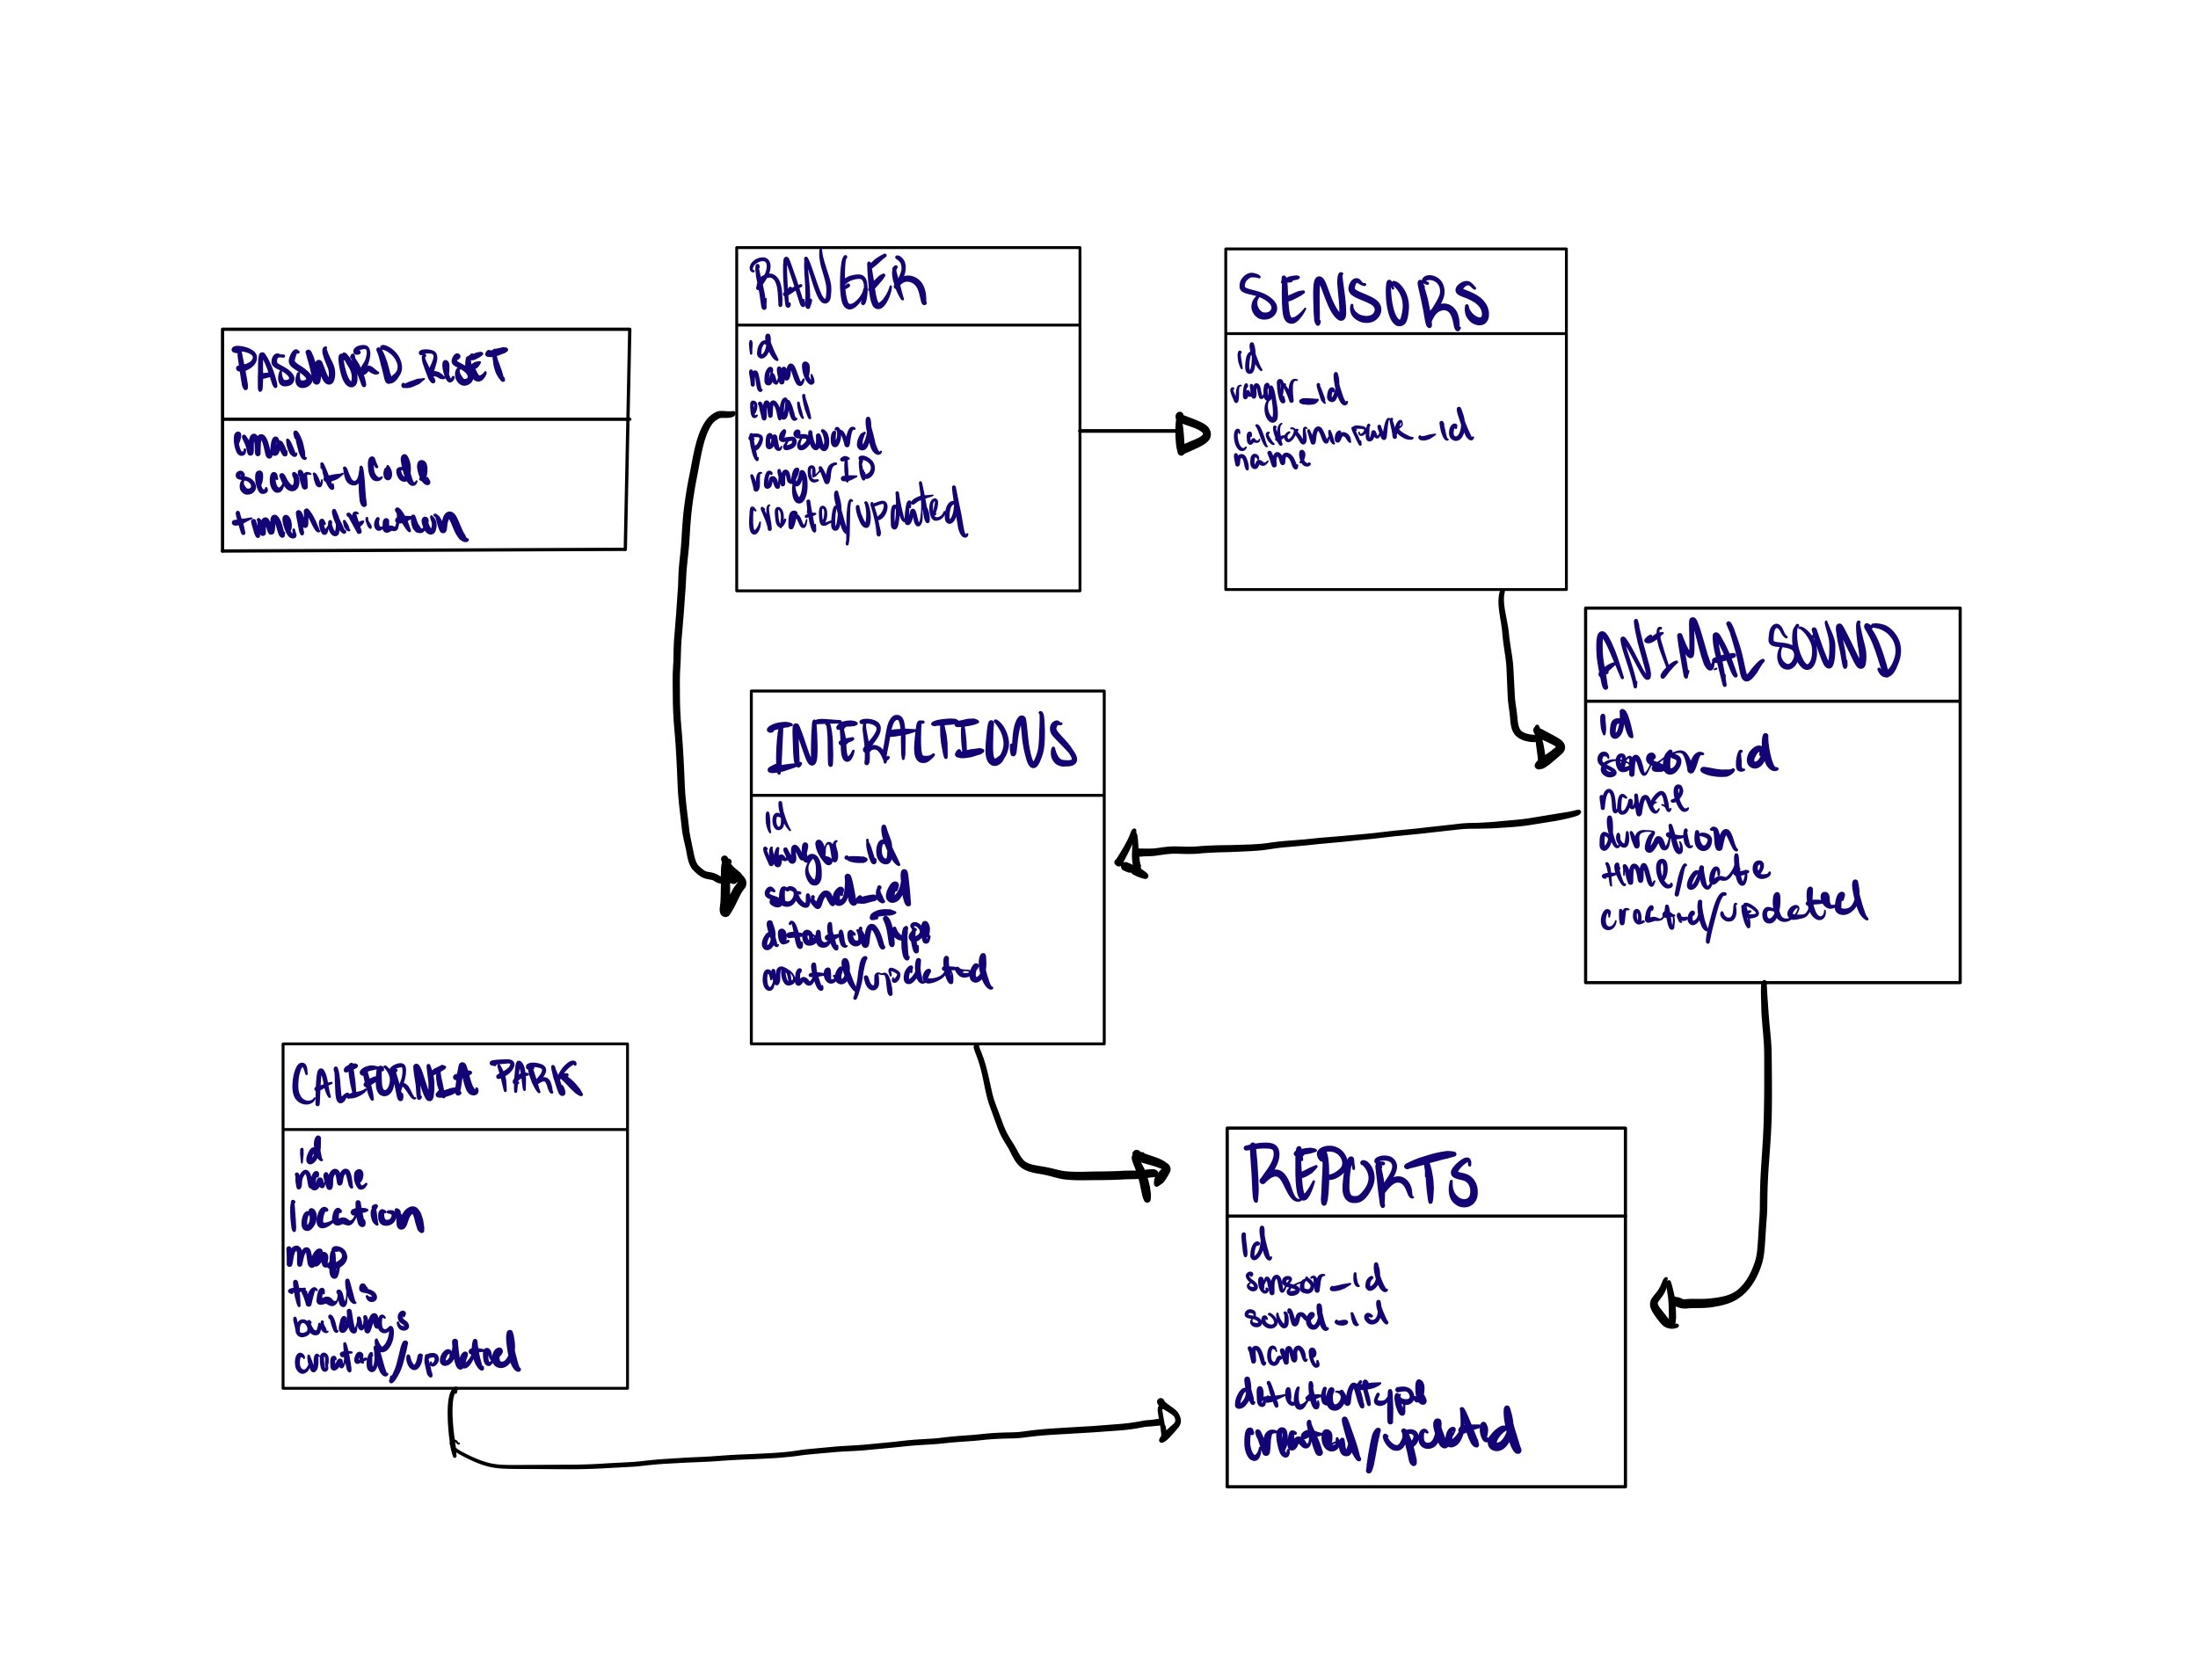 PASSWORD_RESET
email
securityCode
timeOfModification
RANGER
id
name
email
password
rangerID
created/updated
SENSORS
id
ranger_id
californiapark_id
name
ANIMAL SOUND
id
sensor_id
name
duration
time/date
created/updated
INTERACTIONS
id
ranger_id
sound_id
detectionType
created/updated
CALIFORNIA PARK
id
name
location
map
trails
buildings
created/updated
REPORTS
id
sensor_id
sound_id
name
detectionType
created/updated